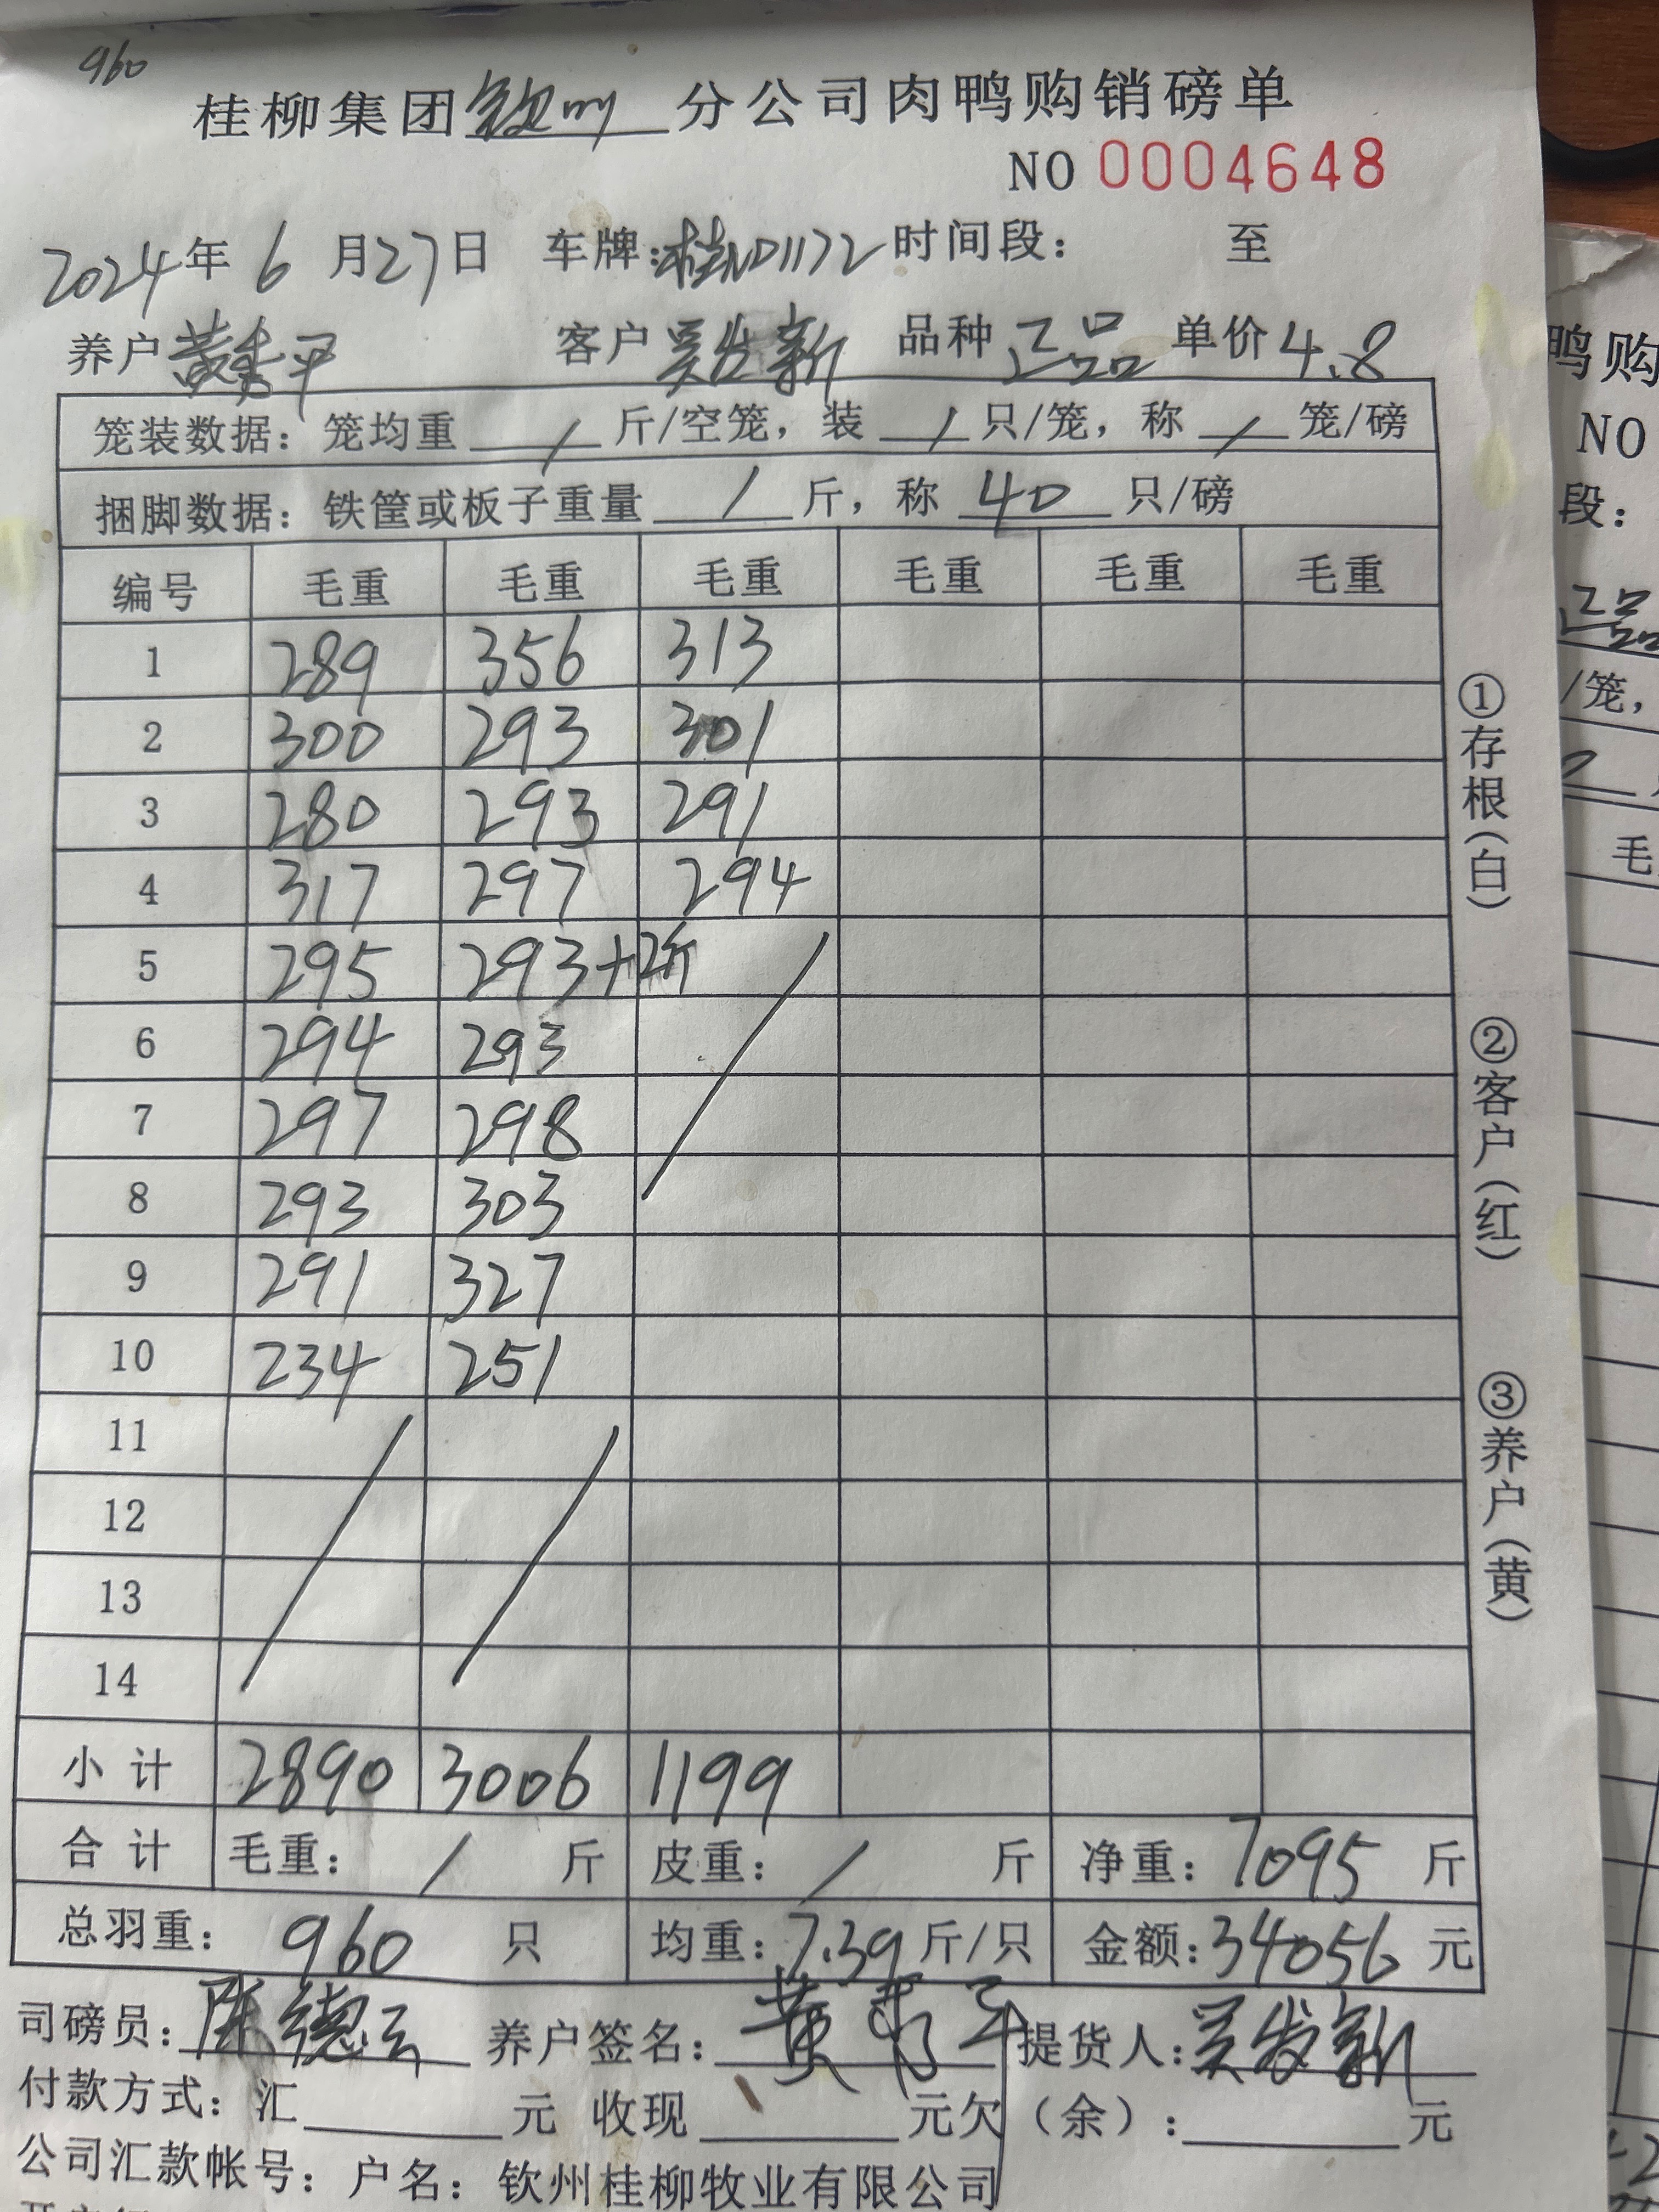 960
桂柳集团钦州分公司肉鸭购销磅单
NO 0004648
2024年6月27日 车牌:桂ND1172 时间段: 至
养户黄秀平 客户吴发新 品种正品 单价4.8
笼装数据: 笼均重 / 斤/空笼, 装 / 只/笼, 称 / 笼/磅
捆脚数据: 铁筐或板子重量 / 斤, 称 40 只/磅
编号 毛重 毛重 毛重 毛重 毛重 毛重
1 289 356 313
2 300 293 301
3 280 293 291
4 317 297 294
5 295 293+2斤
6 294 293
7 297 298
8 293 303
9 291 327
10 234 251
11
12
13
14
小计 2890 3006 1199
合计 毛重: / 斤 皮重: / 斤 净重: 7095 斤
总羽重: 960 只 均重: 7.39 斤/只 金额: 34056 元
司磅员: 陈德云 养户签名: 黄秀平 提货人: 吴发新
付款方式: 汇 元 收现 元欠(余): 元
公司汇款帐号: 户名: 钦州桂柳牧业有限公司
①存根(白)
②客户(红)
③养户(黄)
鸭购
NO
段:
正品
/笼,
毛